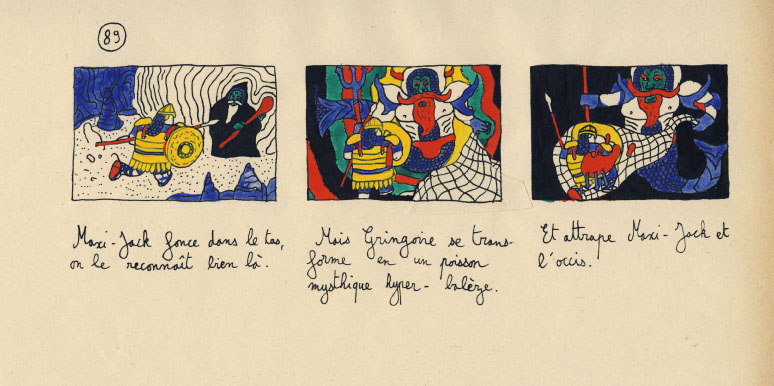 89
Maxi-Jack fonce dans le tas,
on le reconnaît bien là.
Mais Gringoire se trans-
forme en un poisson
mysthique hyper-balèze.
Et attrape Maxi-Jack et
l'occis.